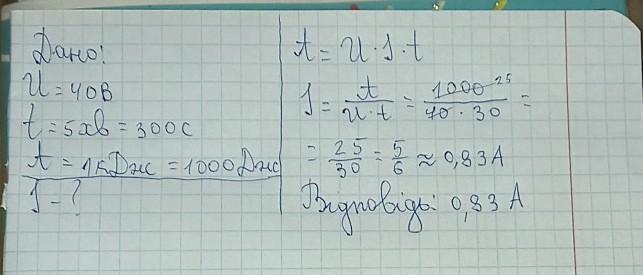 Дано:
U = 40 В
t = 5 хв = 300 с
A = 1 кДж = 1000 Дж
I - ?
A = U · I · t
I = A / U · t = 1000 25 / 40 · 30 =
= 25 / 30 = 5 / 6 ≈ 0,83 А
Відповідь: 0,83 А